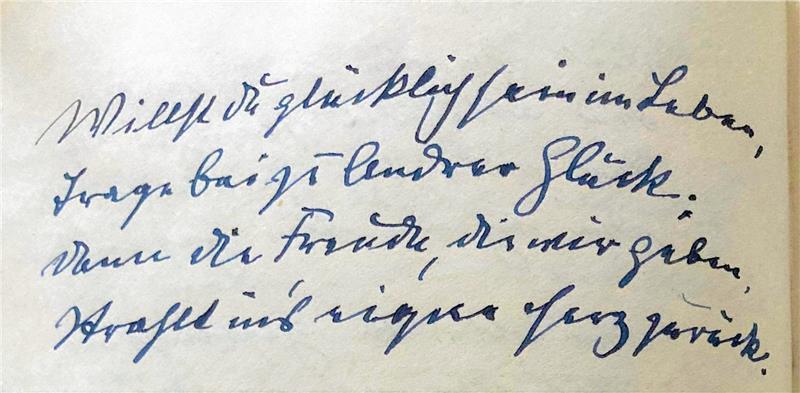 Willst du glücklich sein im Leben,
trage bei zu Andrer Glück;
denn die Freude, die wir geben,
strahlt ins eigne Herz zurück.